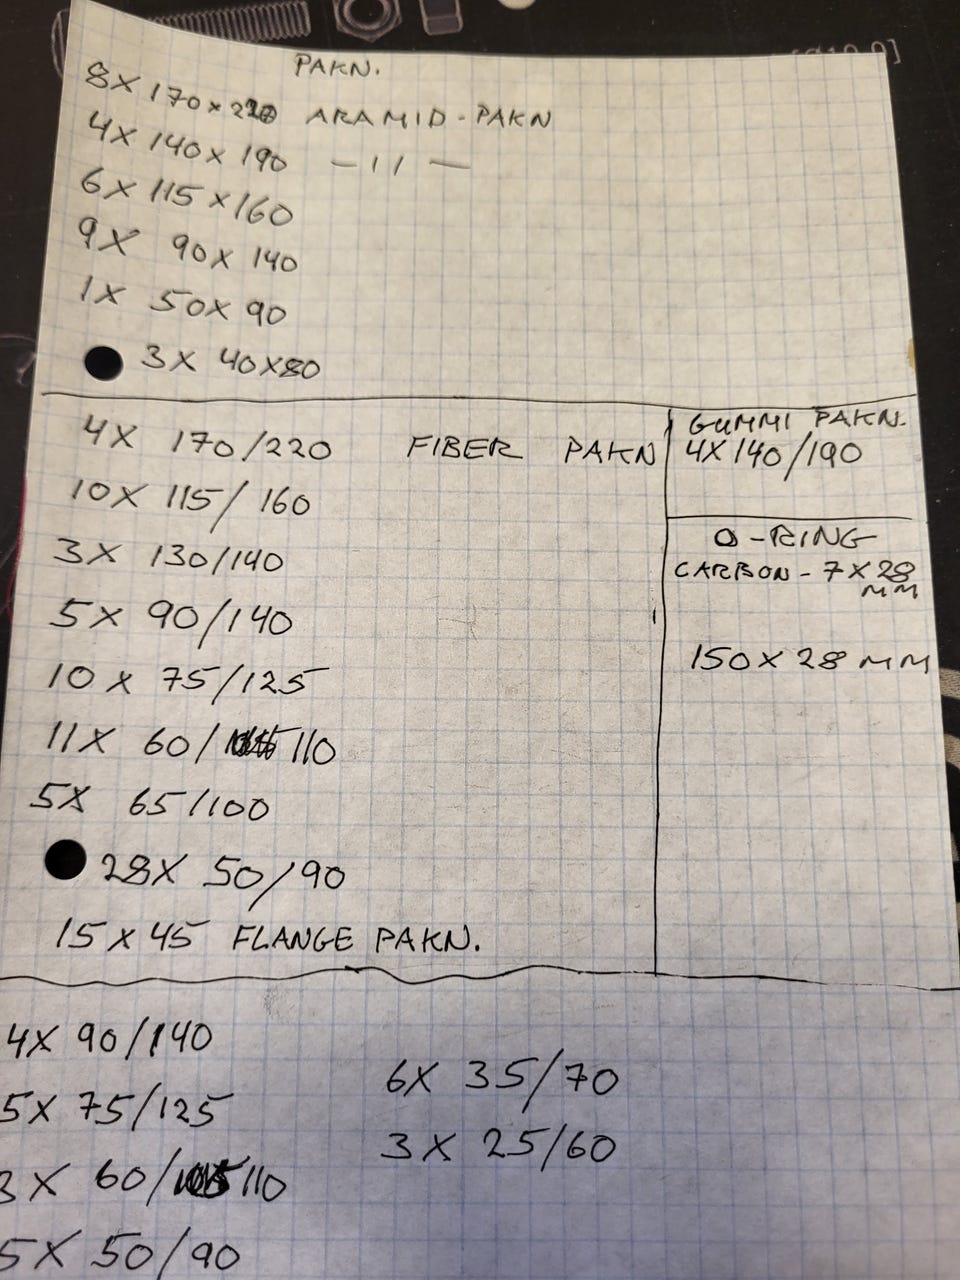 PAKN.
8X 170x220 ARAMID-PAKN
4X 140x190 -11-
6X 115x160
9X 90x140
1X 50x90
3X 40x80
4X 170/220 FIBER PAKN
10X 115/160
3X 130/140
5X 90/140
10X 75/125
11X 60/110
5X 65/100
28X 50/90
15X45 FLANGE PAKN.
GUMMI PAKN.
4X140/190
O-RING
CARBON-7X28
MM
150X28MM
4X 90/140
5X 75/125
3X 60/110
5X 50/90
6X 35/70
3X 25/60